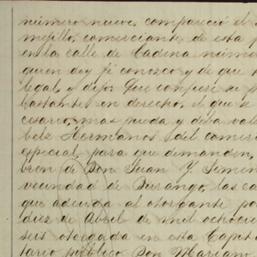 número nueve, compareció el
mejillo, comerciante de esta
en la calle de Cadena núme
quien doy fé conozco y de que
legal, y dijo: Que confiere su
bastante en derecho, el que se
cesario, mas pueda y deba vale
bete Hermanos del comer
especial, para que demanden,
bren de Don Juan Y. Jimen
vecindad de Durango, las ca
que adeuda al otorgante po
diez de Abril de mil ochocie
seis otorgada en esta Capit
tario público Don Mariano